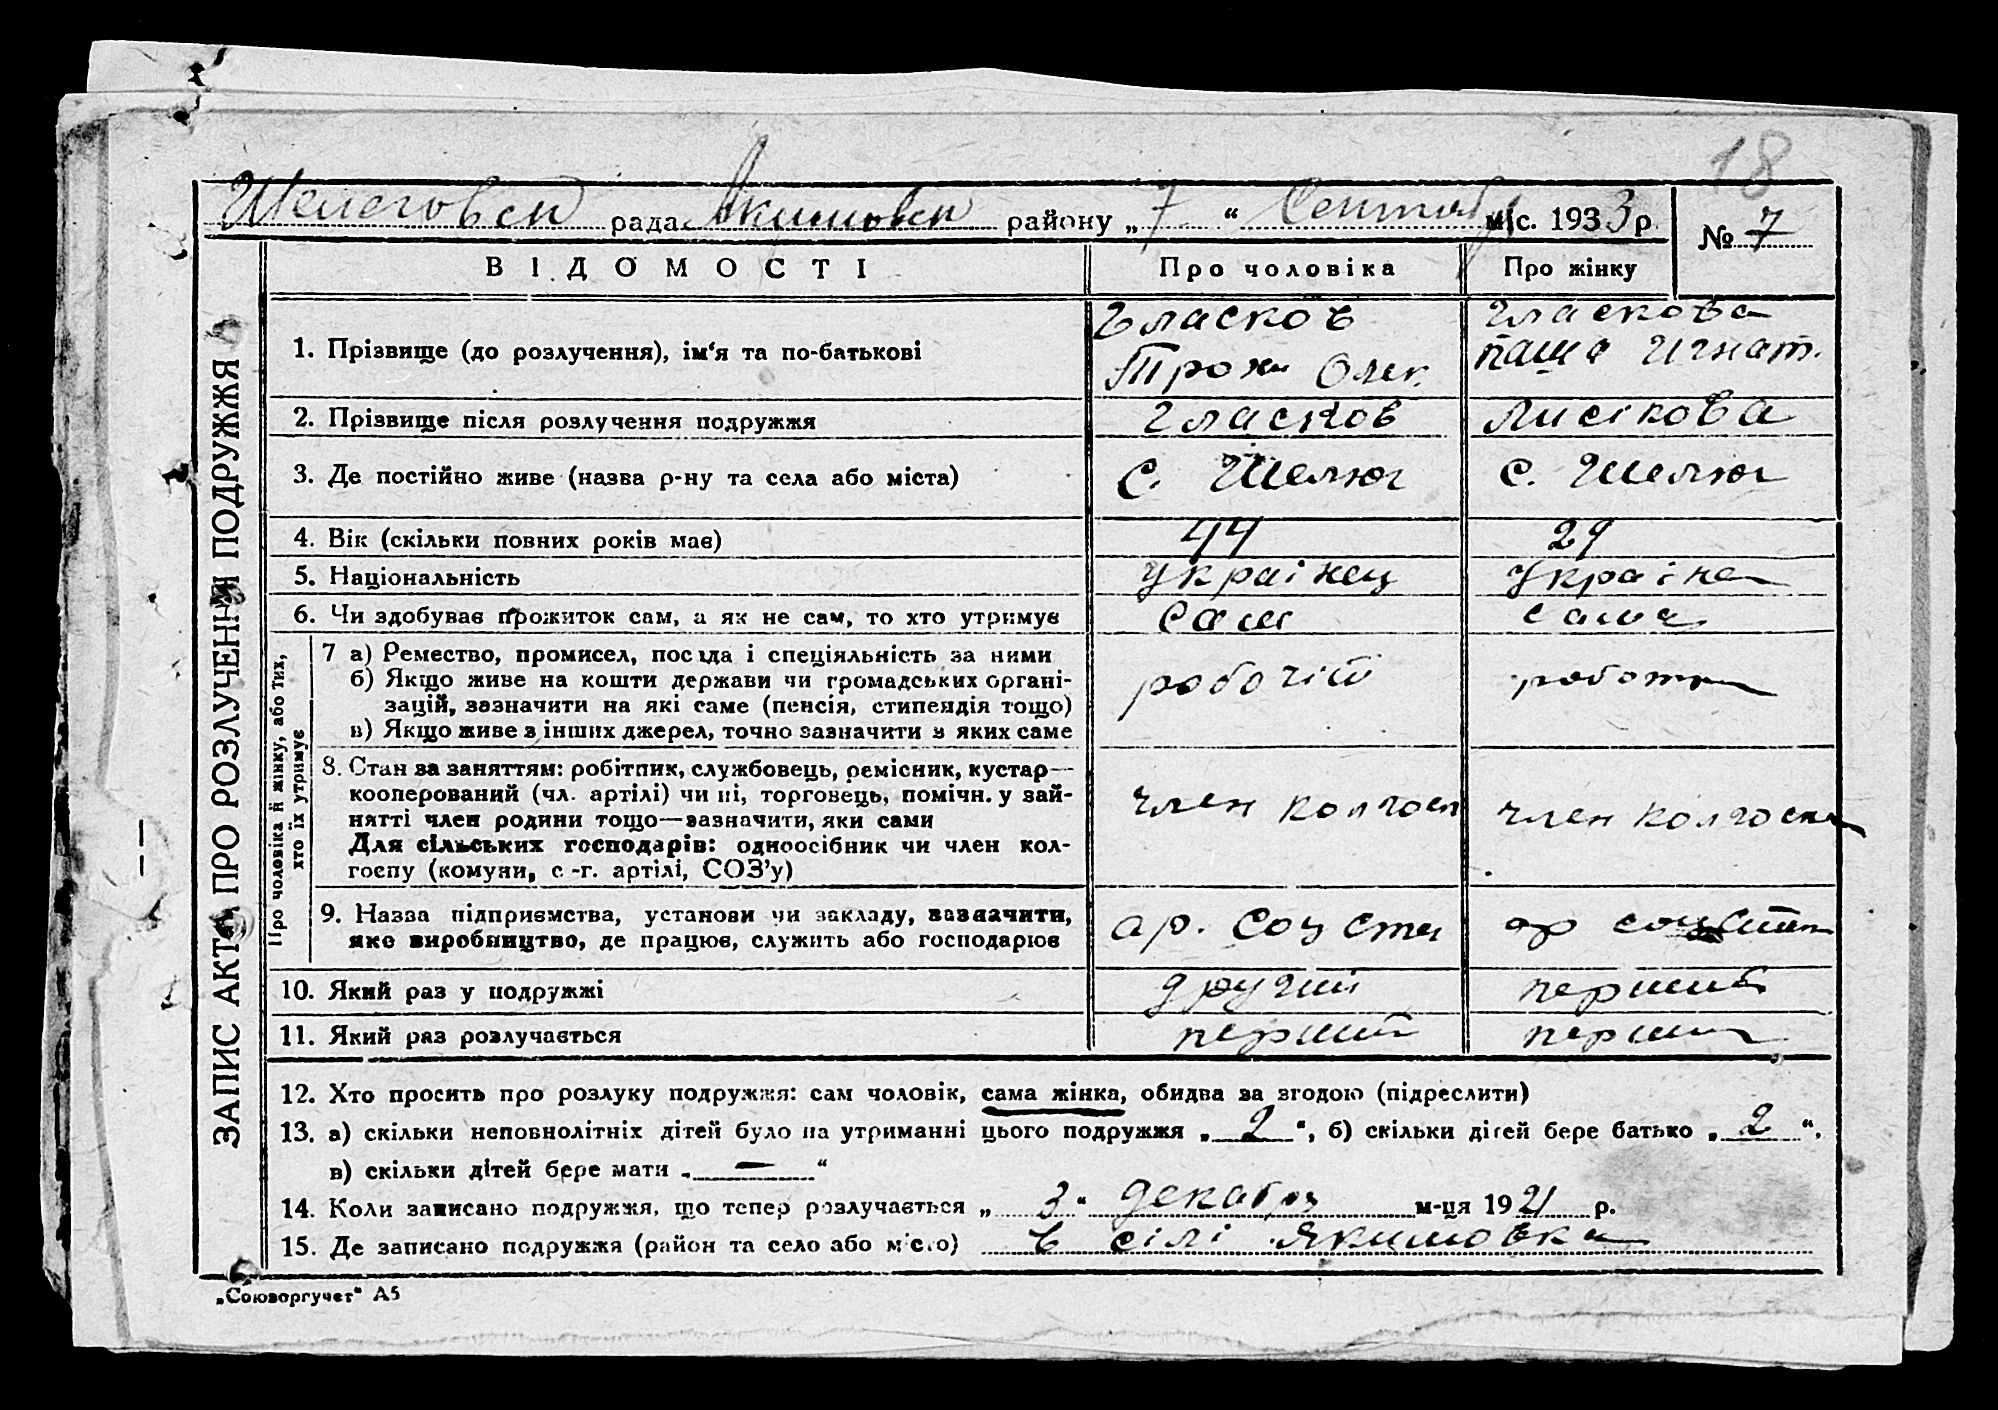 18
Шелеговсп рада Якимовсп району „ 7 “ Сентябр міс. 1933 р. № 7
ВІДОМОСТІ Про чоловіка Про жінку
Гласков Гласкова
1. Прізвище (до розлучення), ім‘я та по-батькові
Трохи Олек. Паша Игнат.
2. Прізвище після розлучення подружжя Гласков Лисікова
3. Де постійно живе (назва р-ну та села або міста) с. Шелюг с. Шелюг
4. Вік (скільки повних років має) 44 29
5. Національність українец україн
6. Чи здобуває прожиток сам, а як не сам, то хто утримує сам сама
Про чоловіка й жінку, або тих,
хто їх утримує
7 а) Ремество, промисел, посада і спеціяльність за ними
б) Якщо живе на кошти держави чи громадських органі- робочій
зацій, зазначити на які саме (пенсія, стипендія тощо)
в) Якщо живе з інших джерел, точно зазначити з яких саме
8. Стан за заняттям: робітник, службовець, ремісник, кустар—
кооперований (чл. артілі) чи ні, торговець, помічн. у зай- член колгосп член колгоспа
нятті член родини тощо—зазначити, яки сами
Для сільських господарів: одноосібник чи член кол-
госпу (комуни, с.-г. артілі, СОЗ’у)
9. Назва підприємства, установи чи закладу, зазначити, ар. Соц ар соц
яке виробництво, де працює, служить або господарює
10. Який раз у подружжі другий перший
11. Який раз розлучається перший перший
12. Хто просить про розлуку подружжя: сам чоловік, сама жінка, обидва за згодою (підреслити)
13. а) скільки неповнолітніх дітей було на утриманні цього подружжя „ 2 “, б) скільки дітей бере батько „ 2 “,
в) скільки дітей бере мати „ — “
14. Коли записано подружжя, що тепер розлучається „ 3 “ декабря м-ця 1921 р.
15. Де записано подружжя (район та село або місто) в сілі Якимовка
„Союзоргучет“ А5
ЗАПИС АКТА ПРО РОЗЛУЧЕННЯ ПОДРУЖЖЯ